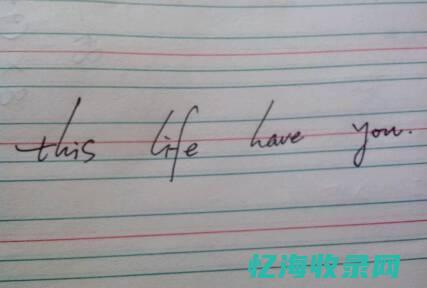 this life have you.
忆海收录网